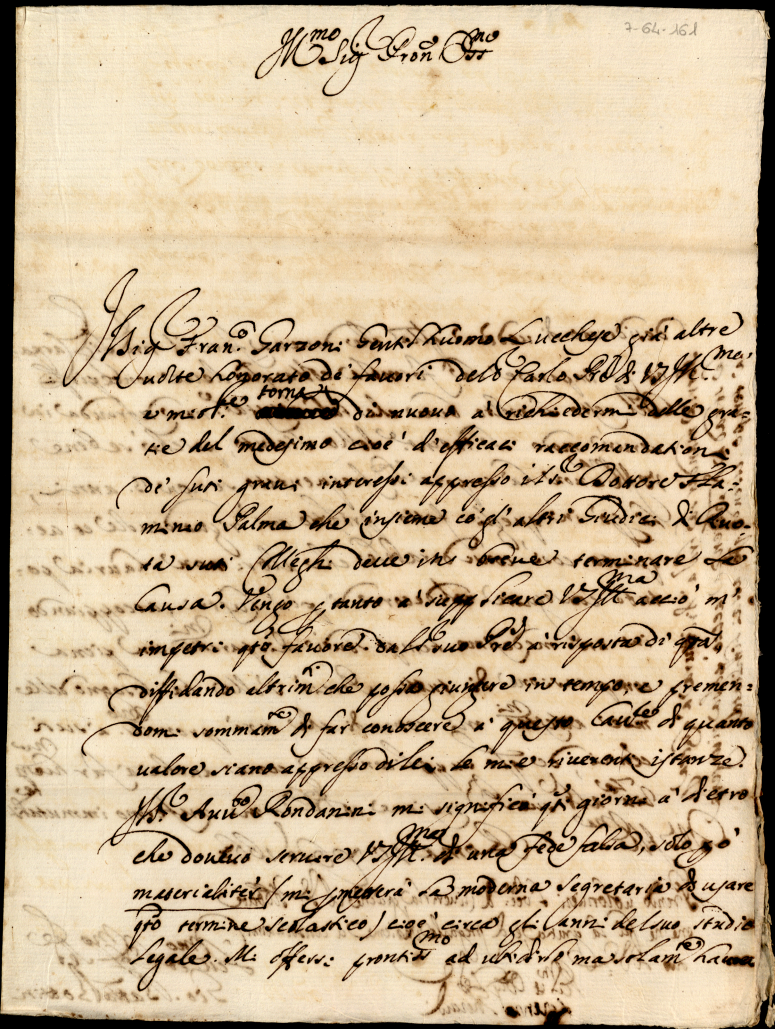 7-64-161
Ill.mo Sig.r Pron Oss.mo
Il Sig.r Fran.o Garzoni Gentil'huomo Lucchese già altre
volte honorato de favori del S.r Carlo Pre di V.S. Ill.ma
e miei torna di nuovo a richiedermi delle gra-
tie del medesimo cioè d'efficaci raccomandationi
de suoi gravi interessi appresso il S.r Dottore Fla-
minio Palma che insieme co gl'altri Giudici di Ruo-
ta suoi Colleghi deve in breve terminare la
causa. Vengo p tanto a supplicare V.S. Ill.ma acciò m'
impetri q.to favore dal S.r suo Pre risposta di
diffidando altrim.ti che possa giungere in tempo, e premen-
domi sommam.te di far conoscere a questo Cav.re di quanto
valore siano appresso di lei le mie riverenti istanze.
Il S.r Avv.o Rondanini mi significò q.ti giorni a dietro
che dovevo scrivere V.S. Ill.ma di una fede falsa, solo p ò
materialiter (mi permetterà la moderna segretaria di usare
q.to termine scolastico) cioè circa gli anni del suo studio
legale. Mi offersi prontiss.mo ad ubidirle ma solam.te